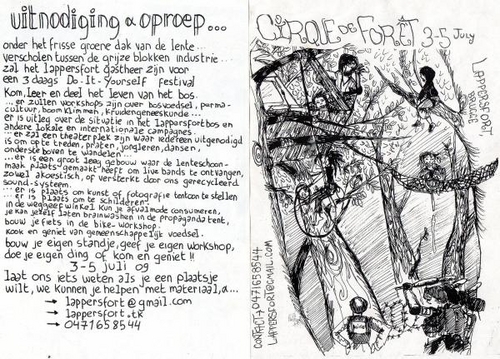 uitnodiging & oproep...
onder het frisse groene dak van de lente...
verscholen tussen de grijze blokken industrie...
zal het lappersfort gastheer zijn voor
een 3 daags Do-It-Yourself festival
Kom, leer en deel het leven van het bos.
...er zullen workshops zijn over bosvoedsel, perma-
cultuur, boomklimmen, kruidengeneeskunde...
er is uitleg over de situatie in het lappersfortbos en
andere lokale en internationale campagnes.
...er zal een theater plek zijn waar iedereen uitgenodigd
is om op te treden, praten, jongleren, dansen,
ondersteboven te wandelen...
...er is een groot leeg gebouw waar de lenteschoon-
maak plaats gemaakt heeft om live bands te ontvangen,
zowel akoestisch, of versterkt door ons gerecycleerd
sound-systeem.
...er is plaats om kunst of fotografie tentoon te stellen
...er is plaats om te schilderen.
in de weggeefwinkel kun je afvalmode consumeren,
je kan jezelf laten brainwashen in de propagandatent,
bouw je fiets in de bike-workshop.
kook en geniet van gemeenschappelijk voedsel.
bouw je eigen standje, geef je eigen workshop,
doe je eigen ding of kom en geniet!!
3-5 juli 09
laat ons iets weten als je een plaatsje
wilt, we kunnen je helpen met materiaal, a...
→ lappersfort@gmail.com
→ lappersfort.tk
→ 0471658544
CIRQUE DE FORÊT 3-5 July
LAPPERSFORT
CONTACT→0471658544
LAPPERSFORT@GMAIL.COM